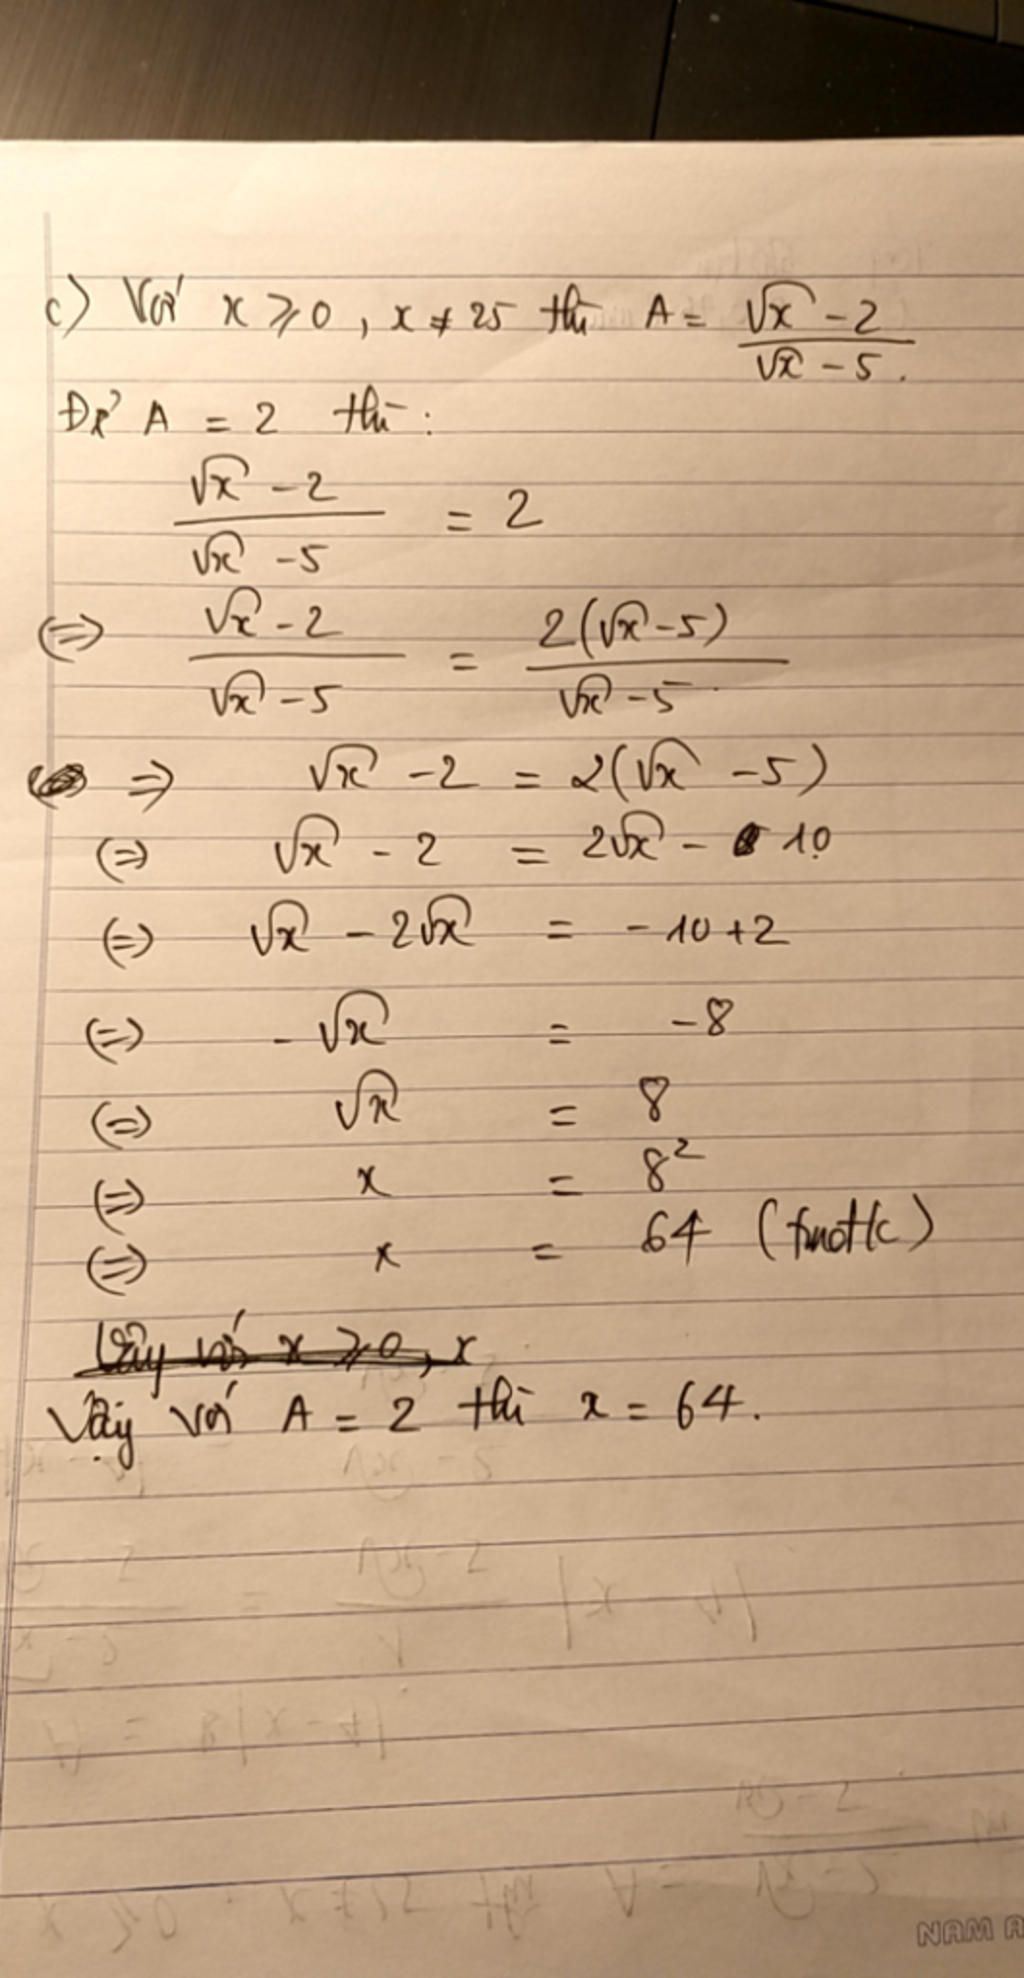 c) Với x ⩾ 0, x ≠ 25 thì A = (√x - 2)/(√x - 5).
Để A = 2 thì:
(√x - 2)/(√x - 5) = 2
(=) (√x - 2)/(√x - 5) = 2(√x - 5)/(√x - 5)
=) √x - 2 = 2(√x - 5)
(=) √x - 2 = 2√x - 10
(=) √x - 2√x = -10 + 2
(=) -√x = -8
(=) √x = 8
(=) x = 8²
(=) x = 64 (tmđk)
Vậy với x ⩾ 0, x
Vậy với A = 2 thì x = 64.
NAM A